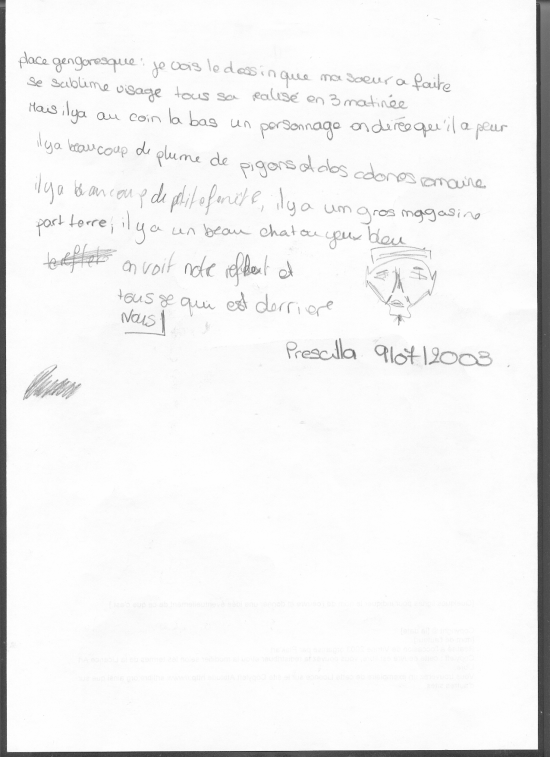 place gengoresque : je vois le dessin que ma soeur a faite
se sublime visage tous sa realisé en 3 matinée
Mais il ya au coin la bas un personnage on direè qu'il a peur
il ya beaucoup de plume de pigons et des colones romaine
il ya beaucoup de ptit fenète, il ya um gros magasine
part terre, il ya un beau chat ou yeux bleu
on voit notre reflent et
tous se que est derriere
Nous!
Prescilla 9/07/2003